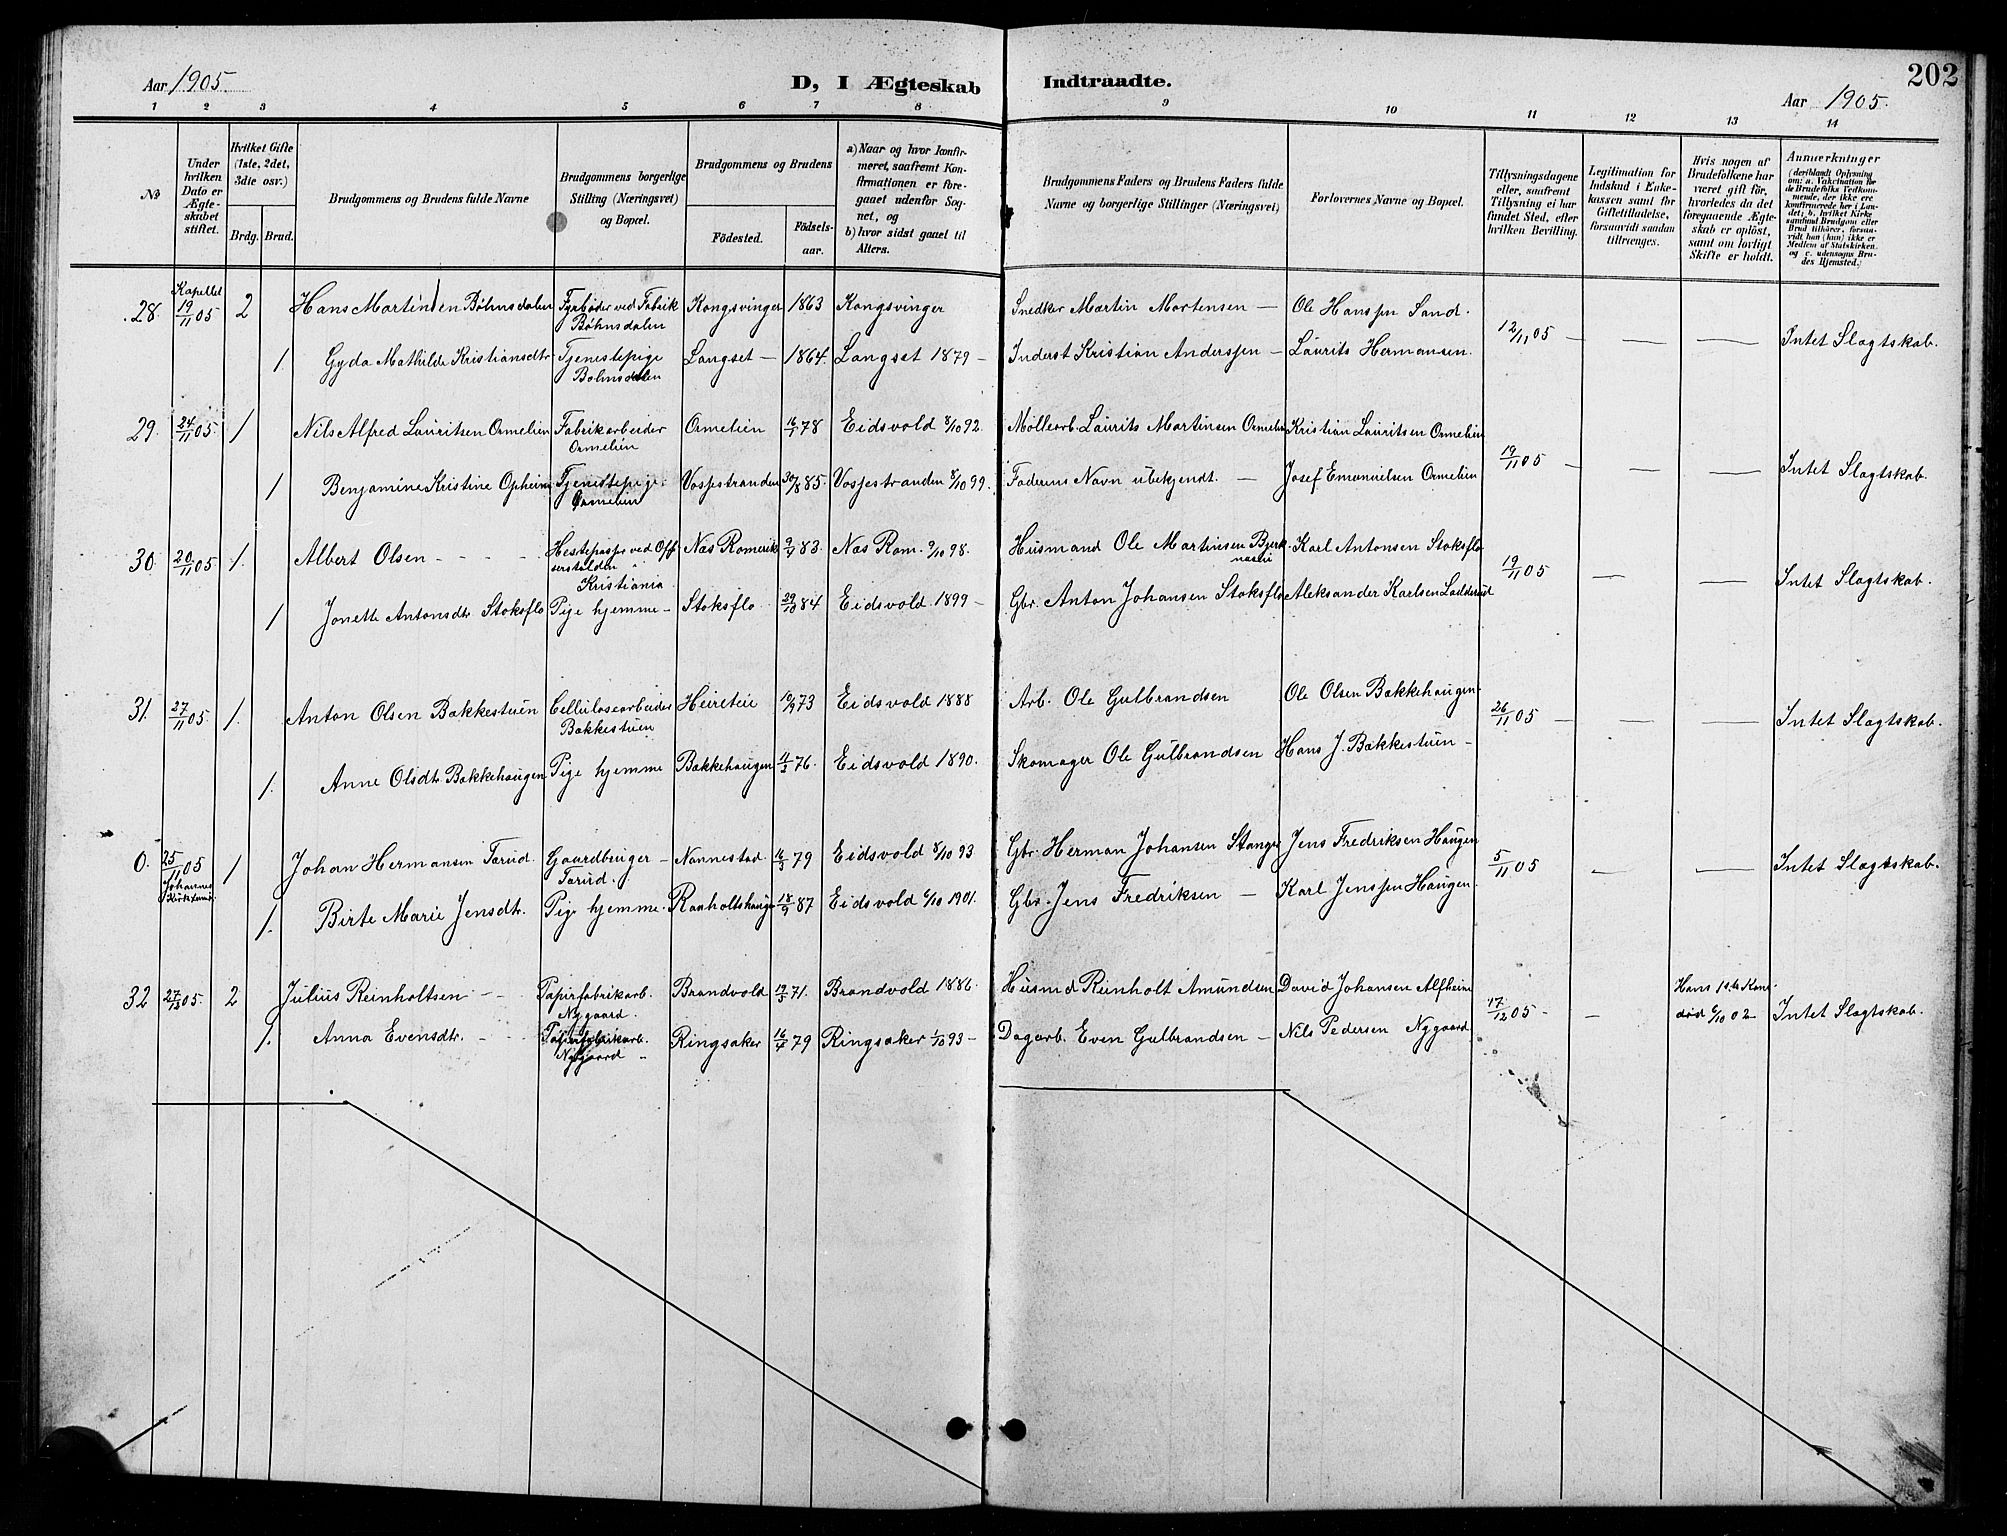 202
Aar 1905.
D, I Ægteskab Indtraadte.
Aar 1905.
1 2 3 4 5 6 7 8 9 10 11 12 13 14
No
Under hvilken Dato er Ægteskabet stiftet.
Hvilket Gifte (1ste, 2det, 3die osv.)
Brdg. Brud.
Brudgommens og Brudens fulde Navne
Brudgommens borgerlige Stilling (Næringsvei) og Bopæl.
Brudgommens og Brudens
Födested.
Födselsaar.
a) Naar og hvor konfirmeret, saafremt Konfirmationen er foregaaet udenfor Sognet, og
b) hvor sidst gaaet til Alters.
Brudgommens Faders og Brudens Faders fulde Navne og borgerlige Stillinger (Næringsvei)
Forlovernes Navne og Bopæl.
Tillysningsdagene eller, saafremt Tillysning ei har fundet Sted, efter hvilken Bevilling.
Legitimation for Indskud i Enkekassen samt for Giftetilladelse, forsaavidt saadan tiltrænges.
Hvis nogen af Brudefolkene har været gift för, hvorledes da det foregaaende Ægteskab er oplöst, samt om lovligt Skifte er holdt.
Anmærkninger (deriblandt Oplysning om: a. Vakcination for de Brudefolks Vedkommende, der ikke ere konfirmerede her i Landet; b. hvilket Kirkesamfund Brudgom eller Brud tilhörer, forsaavidt han (hun) ikke er Medlem af Statskirken. og c. udensogns Brudes Hjemsted.)
Kapellet
28. 19/11 05 2 Hans Martinsen Bøhnsdalen Fyrbøder ved Fabrik Kongsvinger 1863 Kongsvinger Snedker Martin Mortensen — Ole Hanssen Sand.
Bøhnsdalen
12/11 05 — — — Intet Slagtskab.
1. Gyda Mathilde Kristiansdtr. Tjenestepige Langset — 1864. Langset 1879 — Inderst Kristian Anderssen — Laurits Hermansen.
Bøhnsdalen
29. 24/11 05. 1 Nils Alfred Lauritsen Ormelien Fabrikarbeider Ormelien 16/1 78 Eidsvold 8/10 92. Møllearb. Laurits Martinsen Ormelien Kristian Lauritsen Ormelien
Ormelien
19/11 05 — — — Intet Slagtskab.
1 Benjamine Kristine Opheim Tjenestepige Vossestranden 30/8 85. Vossestranden 8/10 99. Faderens Navn ubekjendt. — Josef Emanuelsen Ormelien
Ormelien
30. 20/11 05 1. Albert Olsen - - - Hestepasser ved Offi- Næs Romerik 9/4 83. Næs Rom. 9/10 98. Husmand Ole Martinsen Bjerk- Karl Antonsen Stoksflo
serstalden " næslie
Kristiania.
19/11 05 — — Intet Slagtskab.
1 Jonette Antonsdtr. Stoksflo Pige hjemme — Stoksflo 29/10 84 Eidsvold 1899 — Gbr. Anton Johansen Stoksflo Aleksander Karlsen Ladderud
31. 27/11 05 1. Anton Olsen Bakkestuen Cellulosearbeider Heireteie 10/9 73 Eidsvold 1888 Arb. Ole Gulbrandsen Ole Olsen Bakkehaugen
Bakkestuen
26/11 05 — — — Intet Slagtskab.
1. Anne Olsdtr. Bakkehaugen Pige hjemme Bakkehaugen 11/3 76. Eidsvold 1890. Skomager Ole Gulbrandsen Hans J. Bakkestuen —
0. 25/11 05 1 Johan Hermansen Tærud. Gaardbruger — Nannestad 16/3 79 Eidsvold 8/10 93 Gbr. Herman Johansen Stanger Jens Fredriksen Haugen
Johannes Kirke Tærud.
5/11 05 — — Intet Slagtskab.
1. Birte Marie Jensdtr. Pige hjemme. Ranholtshaugen 18/9 87 Eidsvold 6/10 1901. Gbr. Jens Fredriksen — Karl Jenssen Haugen.
32 27/12 05. 2 Julius Reinholtsen - - Papirfabrikarb. Brandvold 19/5 71. Brandvold 1886. Husmd Reinholt Amundsen David Johansen Alfheim
Nygaard.
17/12 05 - — Hans 1ste Kone død 6/10 02 Intet Slagtskab.
1. Anna Evensdtr. - - Papirfabrikarb. Ringsaker 16/4 79 Ringsaker 1/10 93 — Dagarb. Even Gulbrandsen — Nils Pedersen Nygaard
Nygaard "